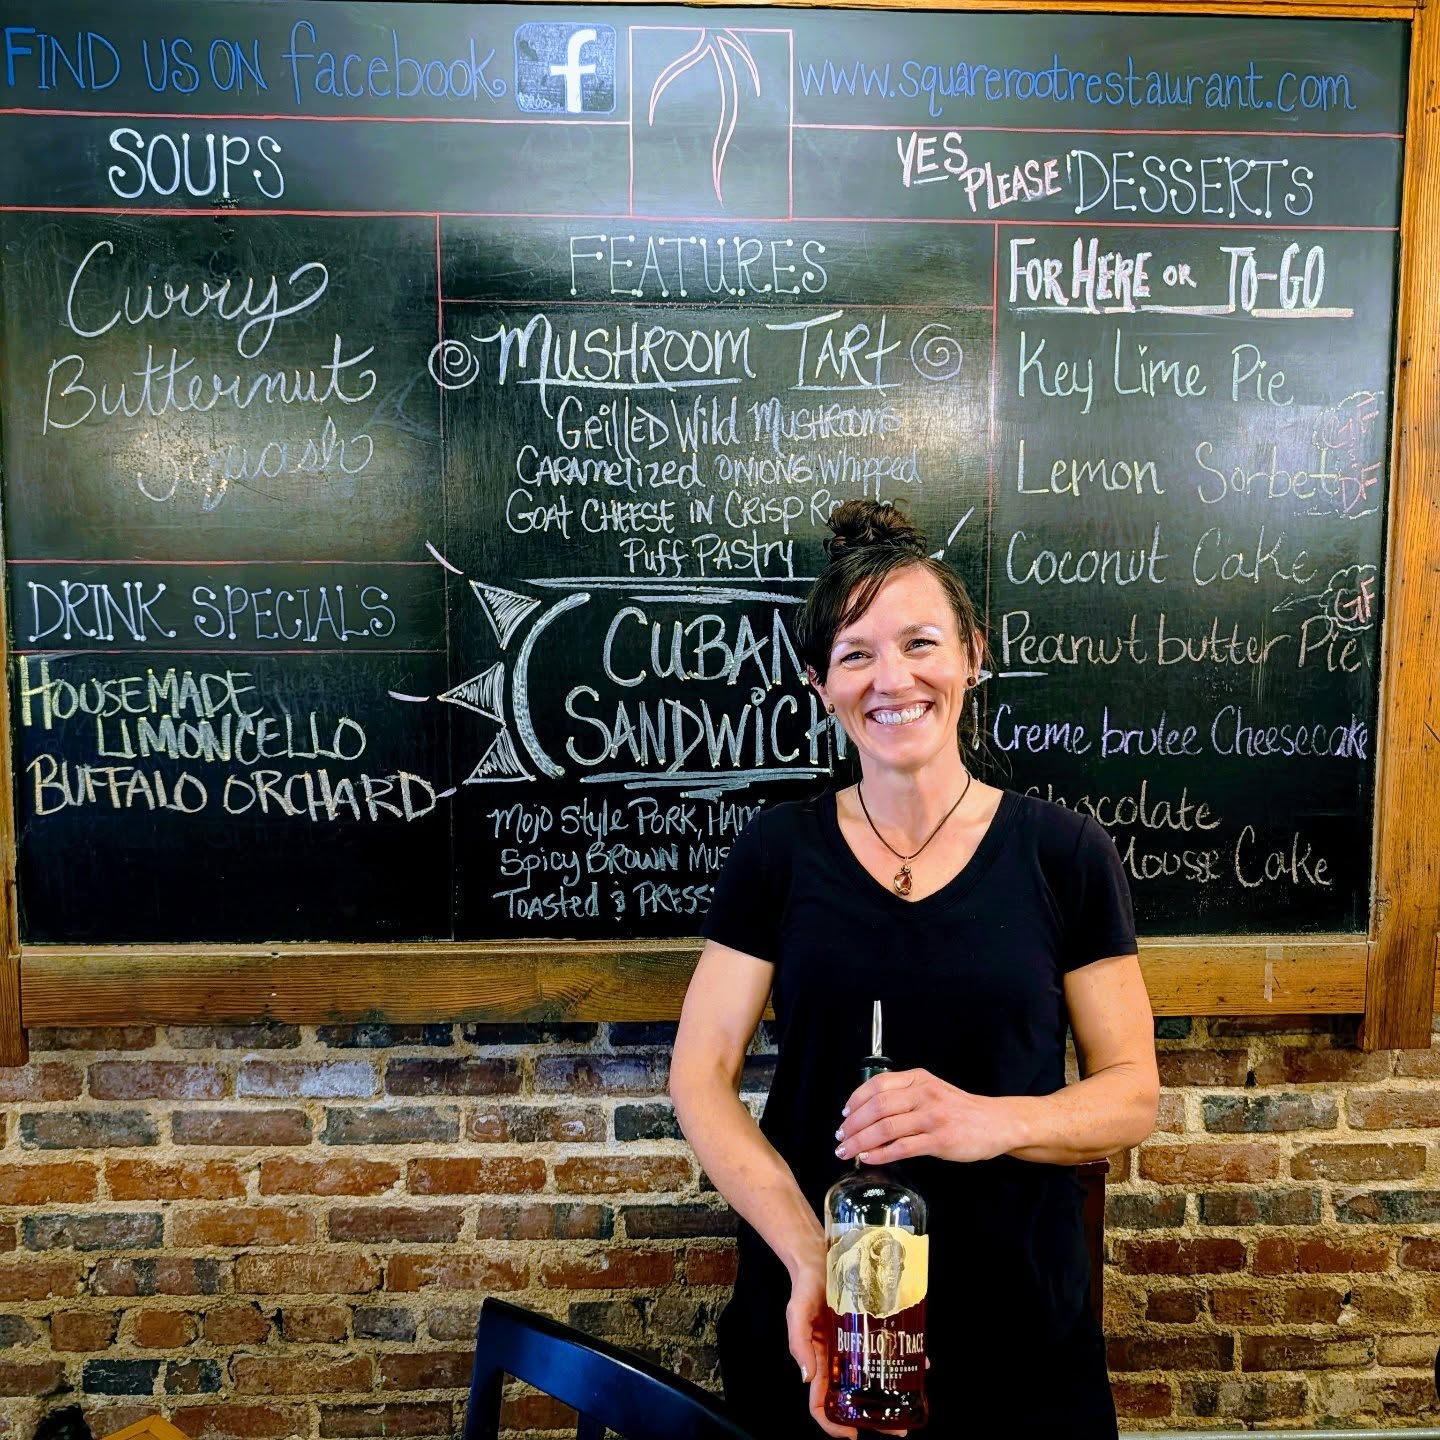 FIND US ON facebook f
www.squarerootrestaurant.com
SOUPS
Curry
Butternut
Squash
DRINK SPECIALS
HOUSEMADE
LIMONCELLO
BUFFALO ORCHARD
FEATURES
MUSHROOM TART
GRILLED WILD MUSHROOMS
CARAMELIZED ONIONS, WHIPPED
GOAT CHEESE IN CRISP
PUFF PASTRY
CUBAN
SANDWICH
MOJO STYLE PORK, HAM
SPICY BROWN
TOASTED & PRESS
YES PLEASE! DESSERTS
FOR HERE OR TO-GO
Key Lime Pie
Lemon Sorbet GF DF
Coconut Cake
Peanut butter Pie GF
Creme brulee Cheesecake
Chocolate
Mousse Cake
BUFFALO TRACE
KENTUCKY
STRAIGHT BOURBON
WHISKEY